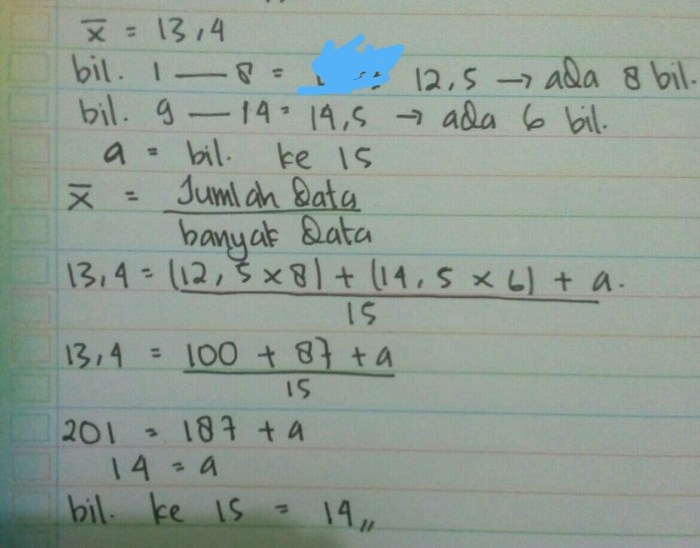 x̄ = 13,4
bil. 1 — 8 = 12,5 → ada 8 bil.
bil. 9 — 14 = 14,5 → ada 6 bil.
a = bil. ke 15
x̄ = Jumlah Data
banyak Data
13,4 = (12,5 x 8) + (14,5 x 6) + a.
15
13,4 = 100 + 87 + a
15
201 = 187 + a
14 = a
bil. ke 15 = 14,,